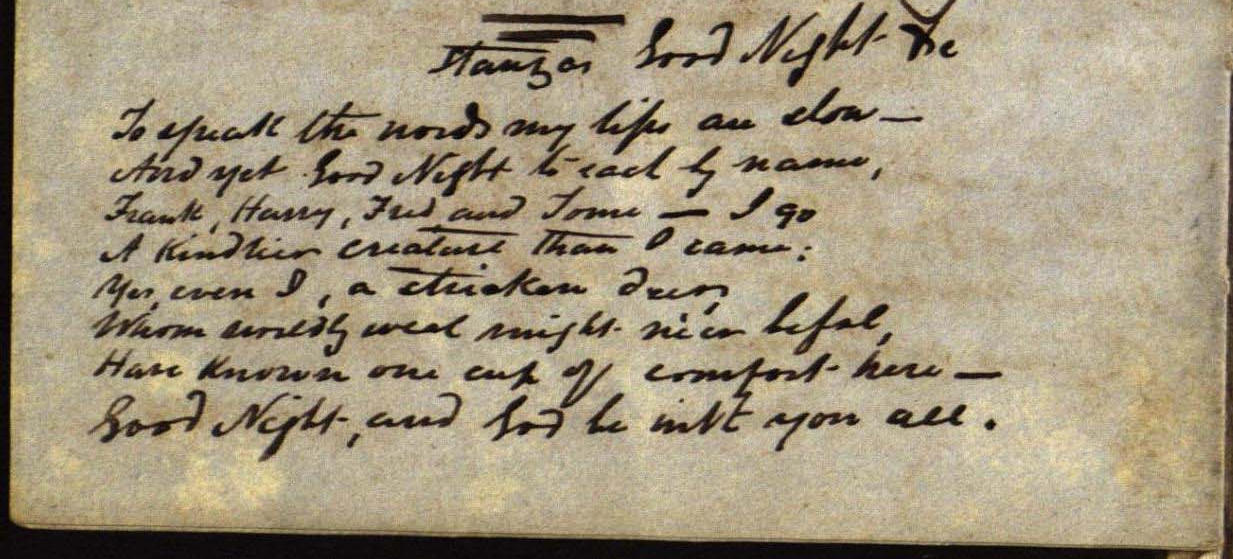 Stanzas Good Night &c
To speak the words my lips are slow —
And yet Good Night to each by name,
Frank, Harry, Fred and Tome — I go
A kindlier creature than I came:
Yes, even I, a stricken deer,
Whom worldly weal might ne'er befal,
Have known one cup of comfort here —
Good Night, and God be with you all.